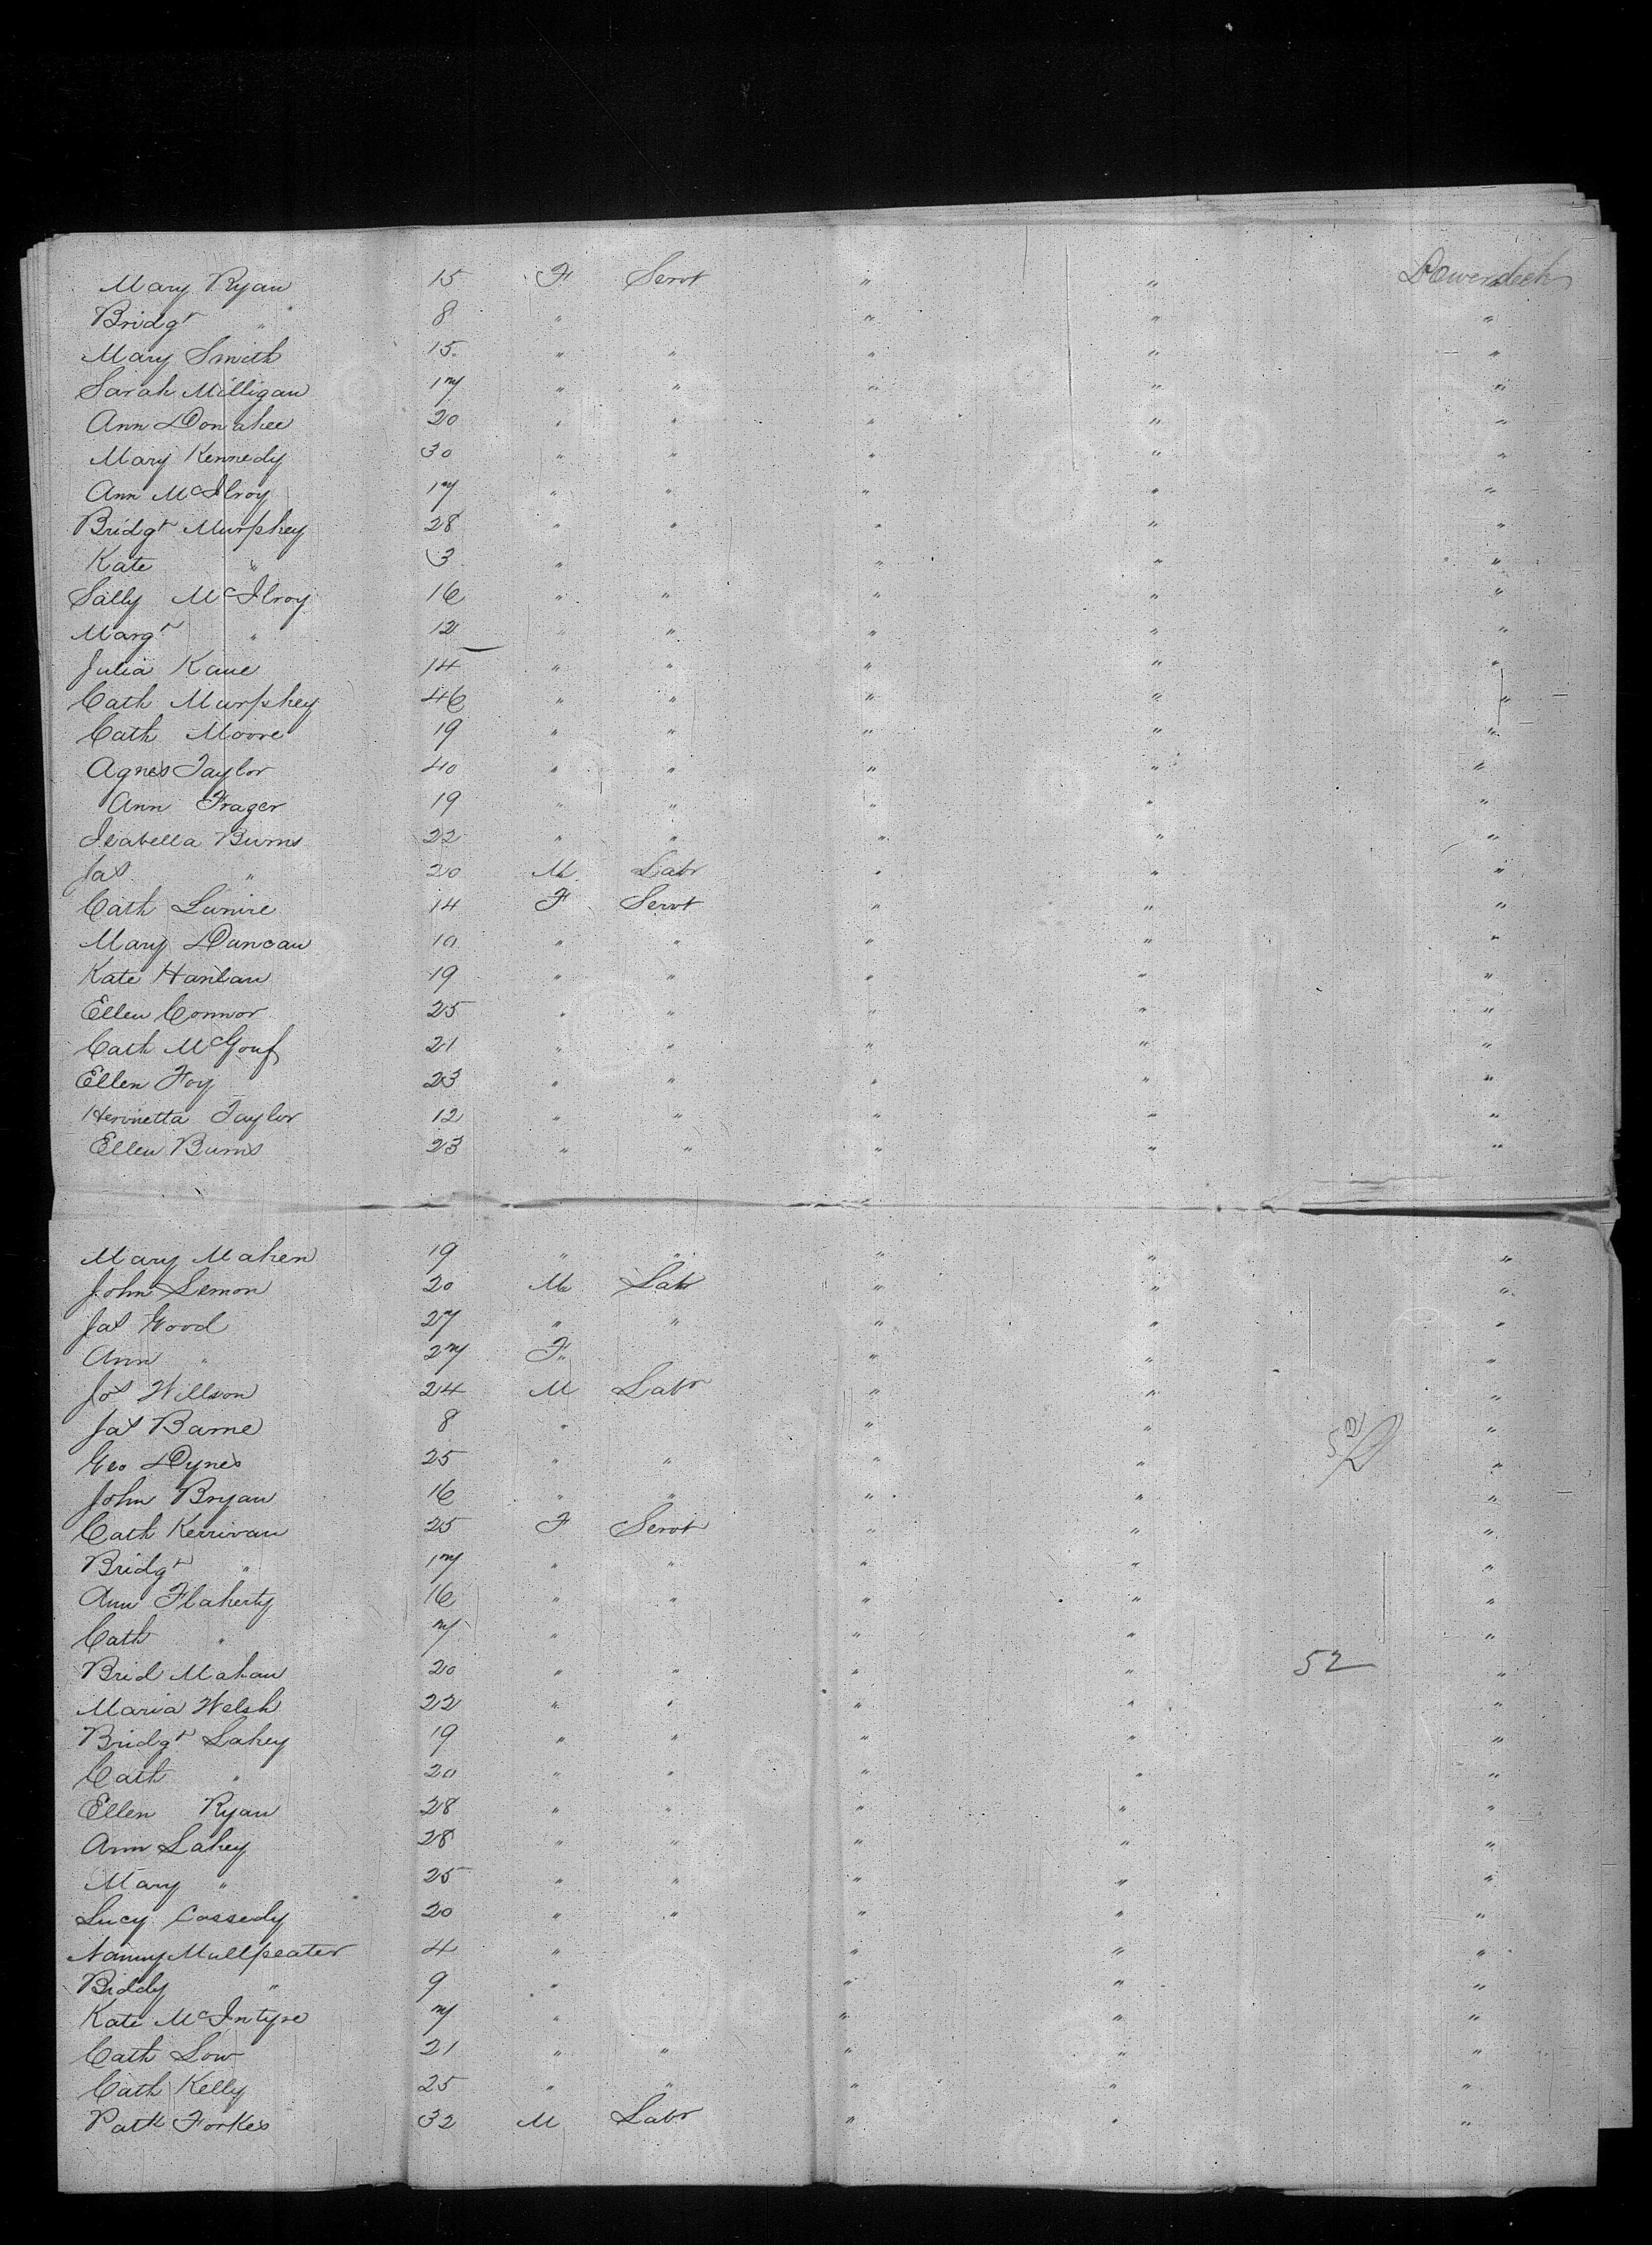 Mary Ryan 15 F Servt " " Lowerdeck
Bridgt " 8 " " " "
Mary Smith 15 " " " " "
Sarah Milligan 17 " " " " "
Ann Donahee 20 " " " " "
Mary Kennedy 30 " " " " "
Ann McIlroy 17 " " " " "
Bridgt Murphey 28 " " " " "
Kate " 3 " " " "
Sally McIlroy 16 " " " " "
Margt " 12 " " " " "
Julia Kane 14 " " " " "
Cath Murphey 46 " " " " "
Cath Moore 19 " " " " "
Agnes Taylor 40 " " " " "
Ann Frager 19 " " " " "
Isabella Burns 22 " " " " "
Jas " 20 M Labr " " "
Cath Lunire 14 F Servt " " "
Mary Duncan 10 " " " " "
Kate Hanlan 19 " " " " "
Ellen Connor 25 " " " " "
Cath McGouf 21 " " " " "
Ellen Foy 23 " " " " "
Henrietta Taylor 12 " " " " "
Ellen Burns 23 " " " " "
Mary Mahen 19 " " " " "
John Lemon 20 M Labr " " "
Jas Good 27 " " " " "
Ann " 27 F " " "
Jos Willson 24 M Labr " " "
Jas Barne 8 " " " "
Geo Dynes 25 " " " " 52 "
John Bryan 16 " " " " "
Cath Kerrivan 25 F Servt " " "
Bridgt " 17 " " " " "
Ann Flaherty 16 " " " " "
Cath " 7 " " " "
Brid Mahan 20 " " " " 52 "
Maria Welsh 22 " " " " "
Bridgt Lahey 19 " " " " "
Cath " 20 " " " " "
Ellen Ryan 28 " " " " "
Ann Lahey 28 " " " " "
Mary " 25 " " " " "
Lucy Cassedy 20 " " " " "
Nanny Mullpeater 4 " " " "
Biddy " 9 " " " "
Kate McIntyre 7 " " " "
Cath Low 21 " " " " "
Cath Kelly 25 " " " " "
Patk Forkes 32 M Labr " " "